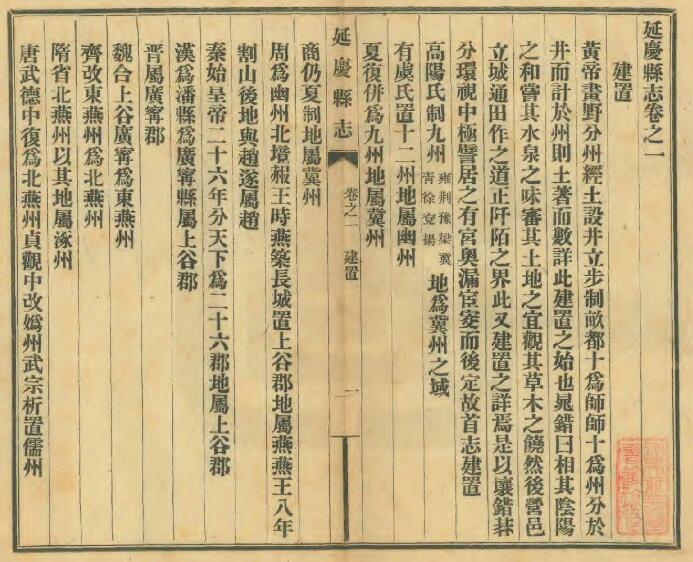 延慶縣志卷之一
建置
黃帝畫野分州經土設井立步制畝都十爲師師十爲州分於
井而計於州則土著而數詳此建置之始也晁錯曰相其陰陽
之和嘗其水泉之味審其土地之宜觀其草木之饒然後營邑
立城通田作之道正阡陌之界此又建置之詳焉是以壤錯棊
分環視中極譬居之有宮奧漏宧窔而後定故首志建置
高陽氏制九州雍荆豫梁冀青徐兗揚地爲冀州之域
有虞氏置十二州地屬幽州
夏復併爲九州地屬冀州
延慶縣志 卷之一 建置 一
商仍夏制地屬冀州
周爲幽州北境赧王時燕築長城置上谷郡地屬燕燕王八年
割山後地與趙遂屬趙
秦始皇帝二十六年分天下爲二十六郡地屬上谷郡
漢爲潘縣爲廣寧縣屬上谷郡
晉屬廣寧郡
魏合上谷廣寧爲東燕州
齊改東燕州爲北燕州
隋省北燕州以其地屬涿州
唐武德中復爲北燕州貞觀中改嬀州武宗析置儒州